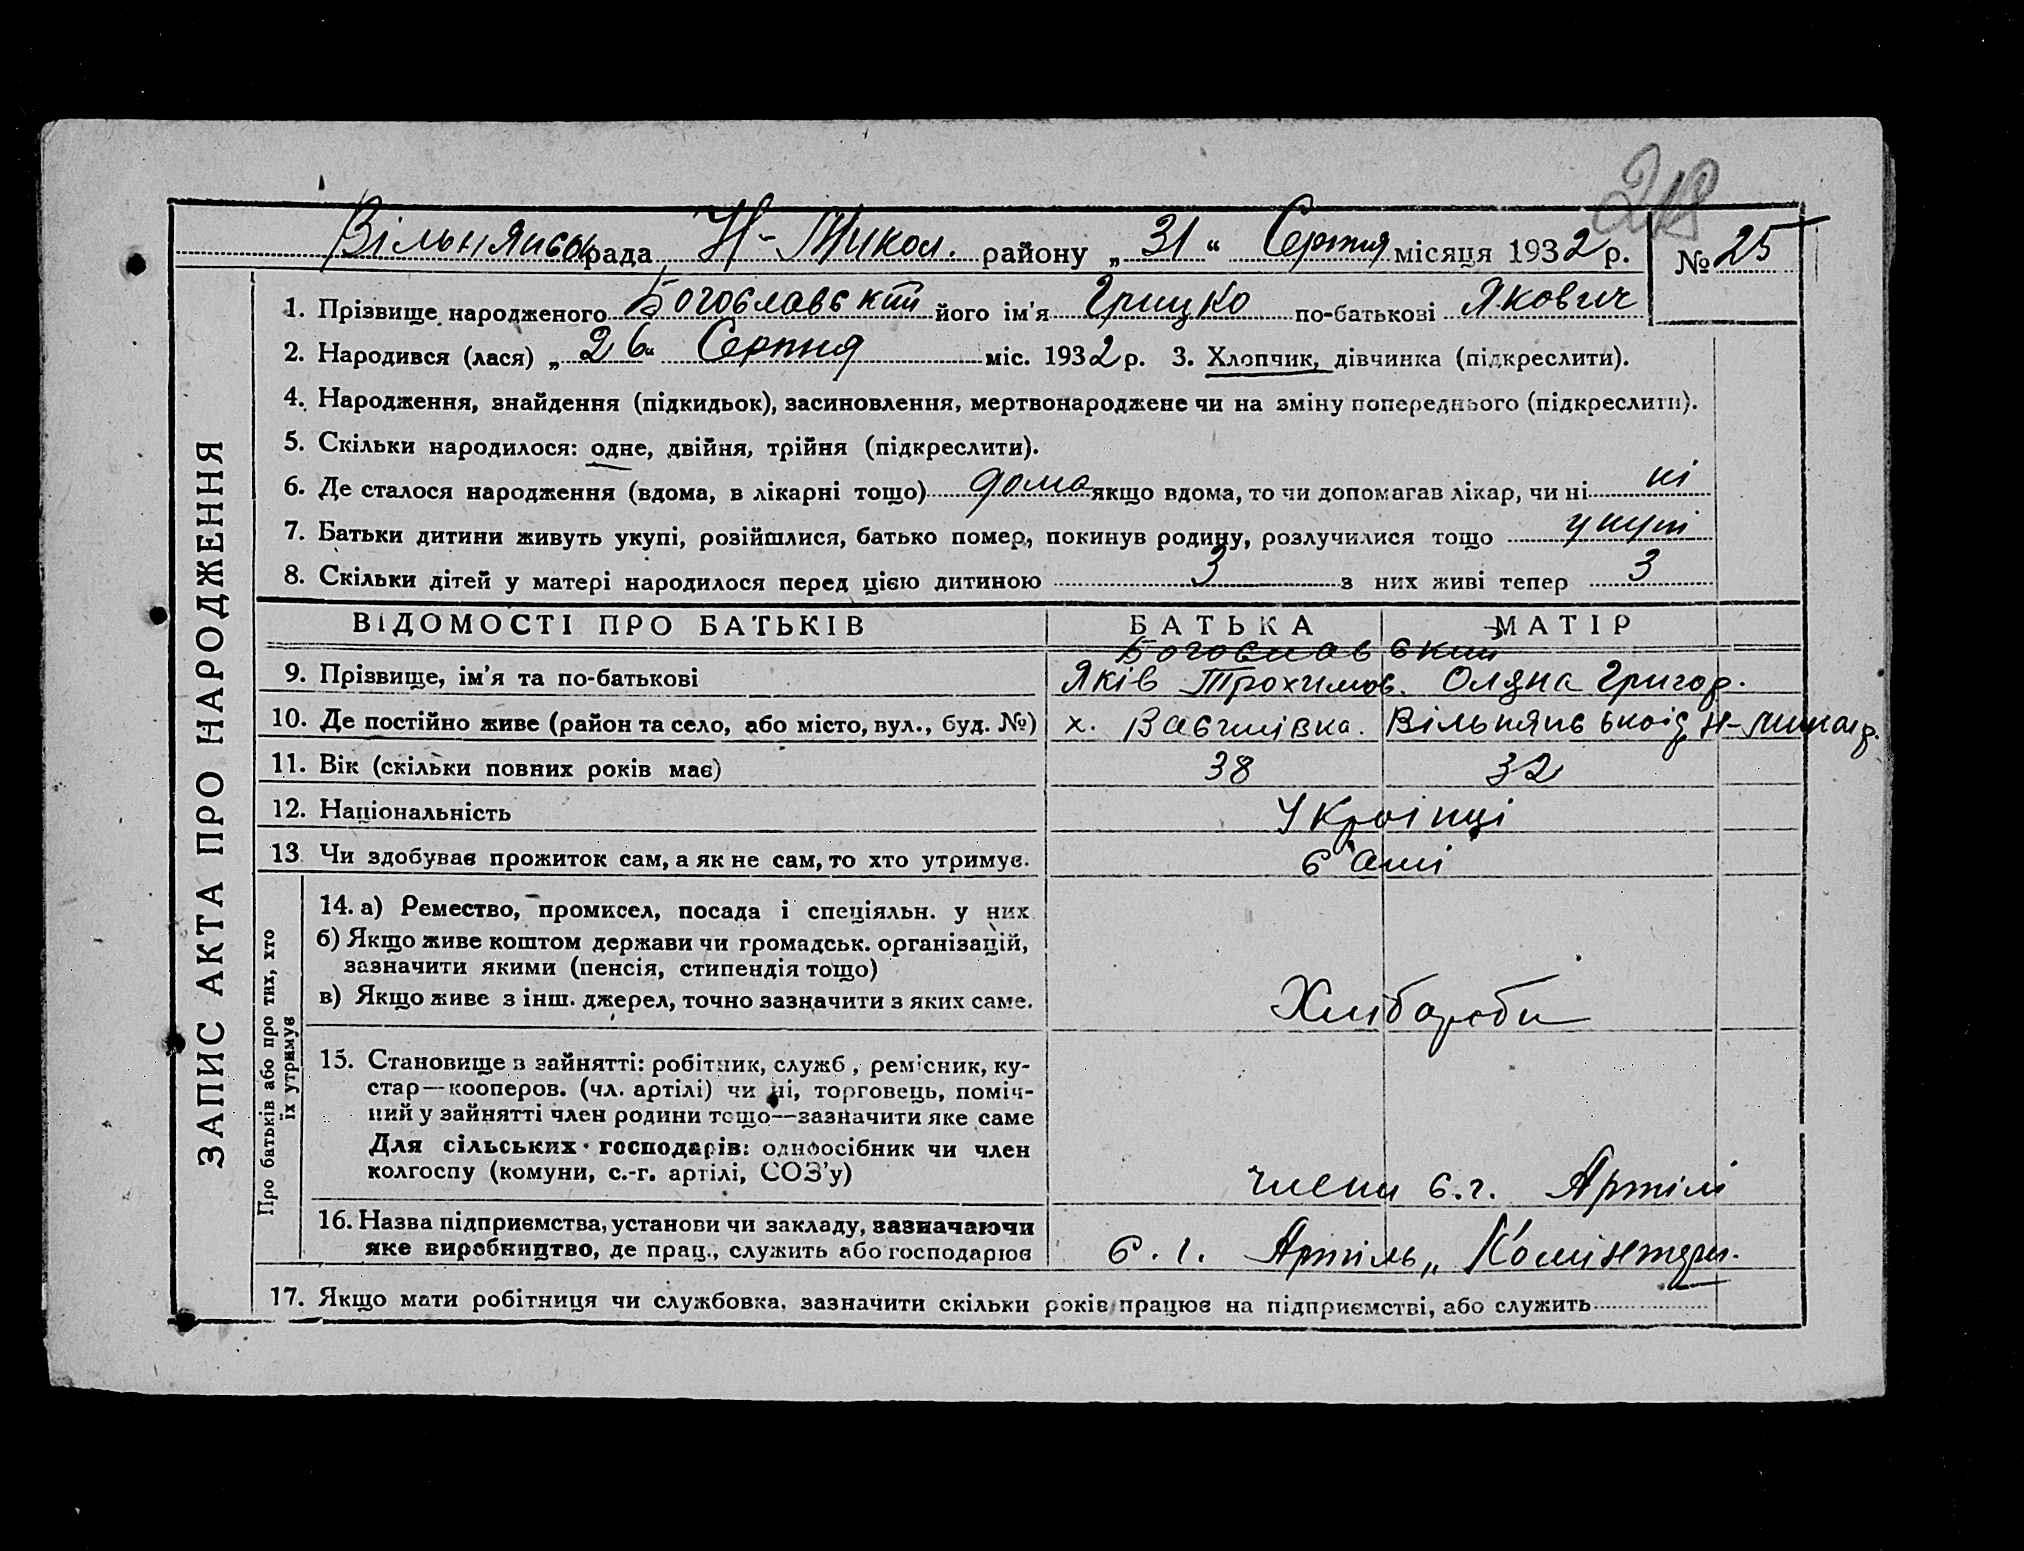 218
Вільнянськ рада Н-Микол. району „ 31 “ Серпня місяця 1932 р. № 25
1. Прізвище народженого Богославський його ім'я Грицко по-батькові Якович
2. Народився (лася) „ 26 “ Серпня міс. 1932 р. 3. Хлопчик, дівчинка (підкреслити).
4. Народження, знайдення (підкидьок), засиновлення, мертвонароджене чи на зміну попереднього (підкреслити).
5. Скільки народилося: одне, двійня, трійня (підкреслити).
6. Де сталося народження (вдома, в лікарні тощо) дома якщо вдома, то чи допомагав лікар, чи ні ні
7. Батьки дитини живуть укупі, розійшлися, батько помер, покинув родину, розлучилися тощо укупі
8. Скільки дітей у матері народилося перед цією дитиною 3 з них живі тепер 3
ЗАПИС АКТА ПРО НАРОДЖЕННЯ
ВІДОМОСТІ ПРО БАТЬКІВ БАТЬКА МАТІР
Богославський
9. Прізвище, ім'я та по-батькові Яків Трохимов. Оляна Григор.
10. Де постійно живе (район та село, або місто, вул., буд. №) х. Василівка. Вільнянської Н-Микол р.
11. Вік (скільки повних років має) 38 32
12. Національність Українці
13 Чи здобуває прожиток сам, а як не сам, то хто утримує. самі
Про батьків або про тих, хто
їх утримує
14. а) Ремество, промисел, посада і спеціяльн. у них
б) Якщо живе коштом держави чи громадськ. організацій,
зазначити якими (пенсія, стипендія тощо)
в) Якщо живе з інш. джерел, точно зазначити з яких саме.
Хлібороби
15. Становище в зайнятті: робітник, служб, ремісник, ку-
стар—кооперов. (чл. артілі) чи ні, торговець, поміч-
ний у зайнятті член родини тощо—зазначити яке саме
Для сільських господарів: одноосібник чи член
колгоспу (комуни, с.-г. артілі, СОЗ'у) члени с.г. Артілі
16. Назва підприємства, установи чи закладу, зазначаючи
яке виробництво, де прац., служить або господарює с.г. Артіль „ Комінтерн.
17. Якщо мати робітниця чи службовка, зазначити скільки років працює на підприємстві, або служить